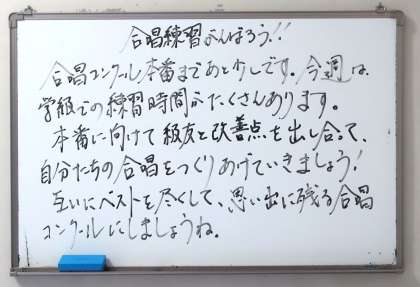 合唱練習がんばろう!!
合唱コンクール本番まであと少しです。今週は、
学級での練習時間がたくさんあります。
本番に向けて級友と改善点を出し合って、
自分たちの合唱をつくりあげていきましょう!
互いにベストを尽くして、思い出に残る合唱
コンクールにしましょうね。